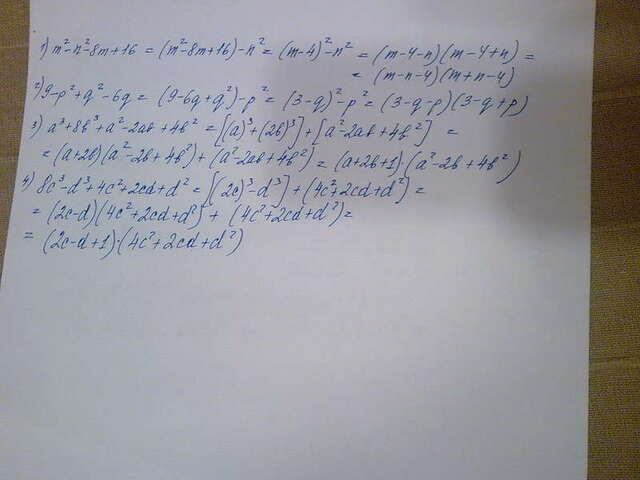 1) m²-n²-8m+16 = (m²-8m+16)-n² = (m-4)²-n² = (m-4-n)(m-4+n) =
= (m-n-4)(m+n-4)
2) 9-p²+q²-6q = (9-6q+q²)-p² = (3-q)²-p² = (3-q-p)(3-q+p)
3) a³+8b³+a²-2ab+4b² = [(a)³+(2b)³]+[a²-2ab+4b²] =
= (a+2b)(a²-2b+4b²)+(a²-2ab+4b²) = (a+2b+1)·(a²-2b+4b²)
4) 8c³-d³+4c²+2cd+d² = [(2c)³-d³]+(4c²+2cd+d²) =
= (2c-d)(4c²+2cd+d²) + (4c²+2cd+d²) =
= (2c-d+1)·(4c²+2cd+d²)